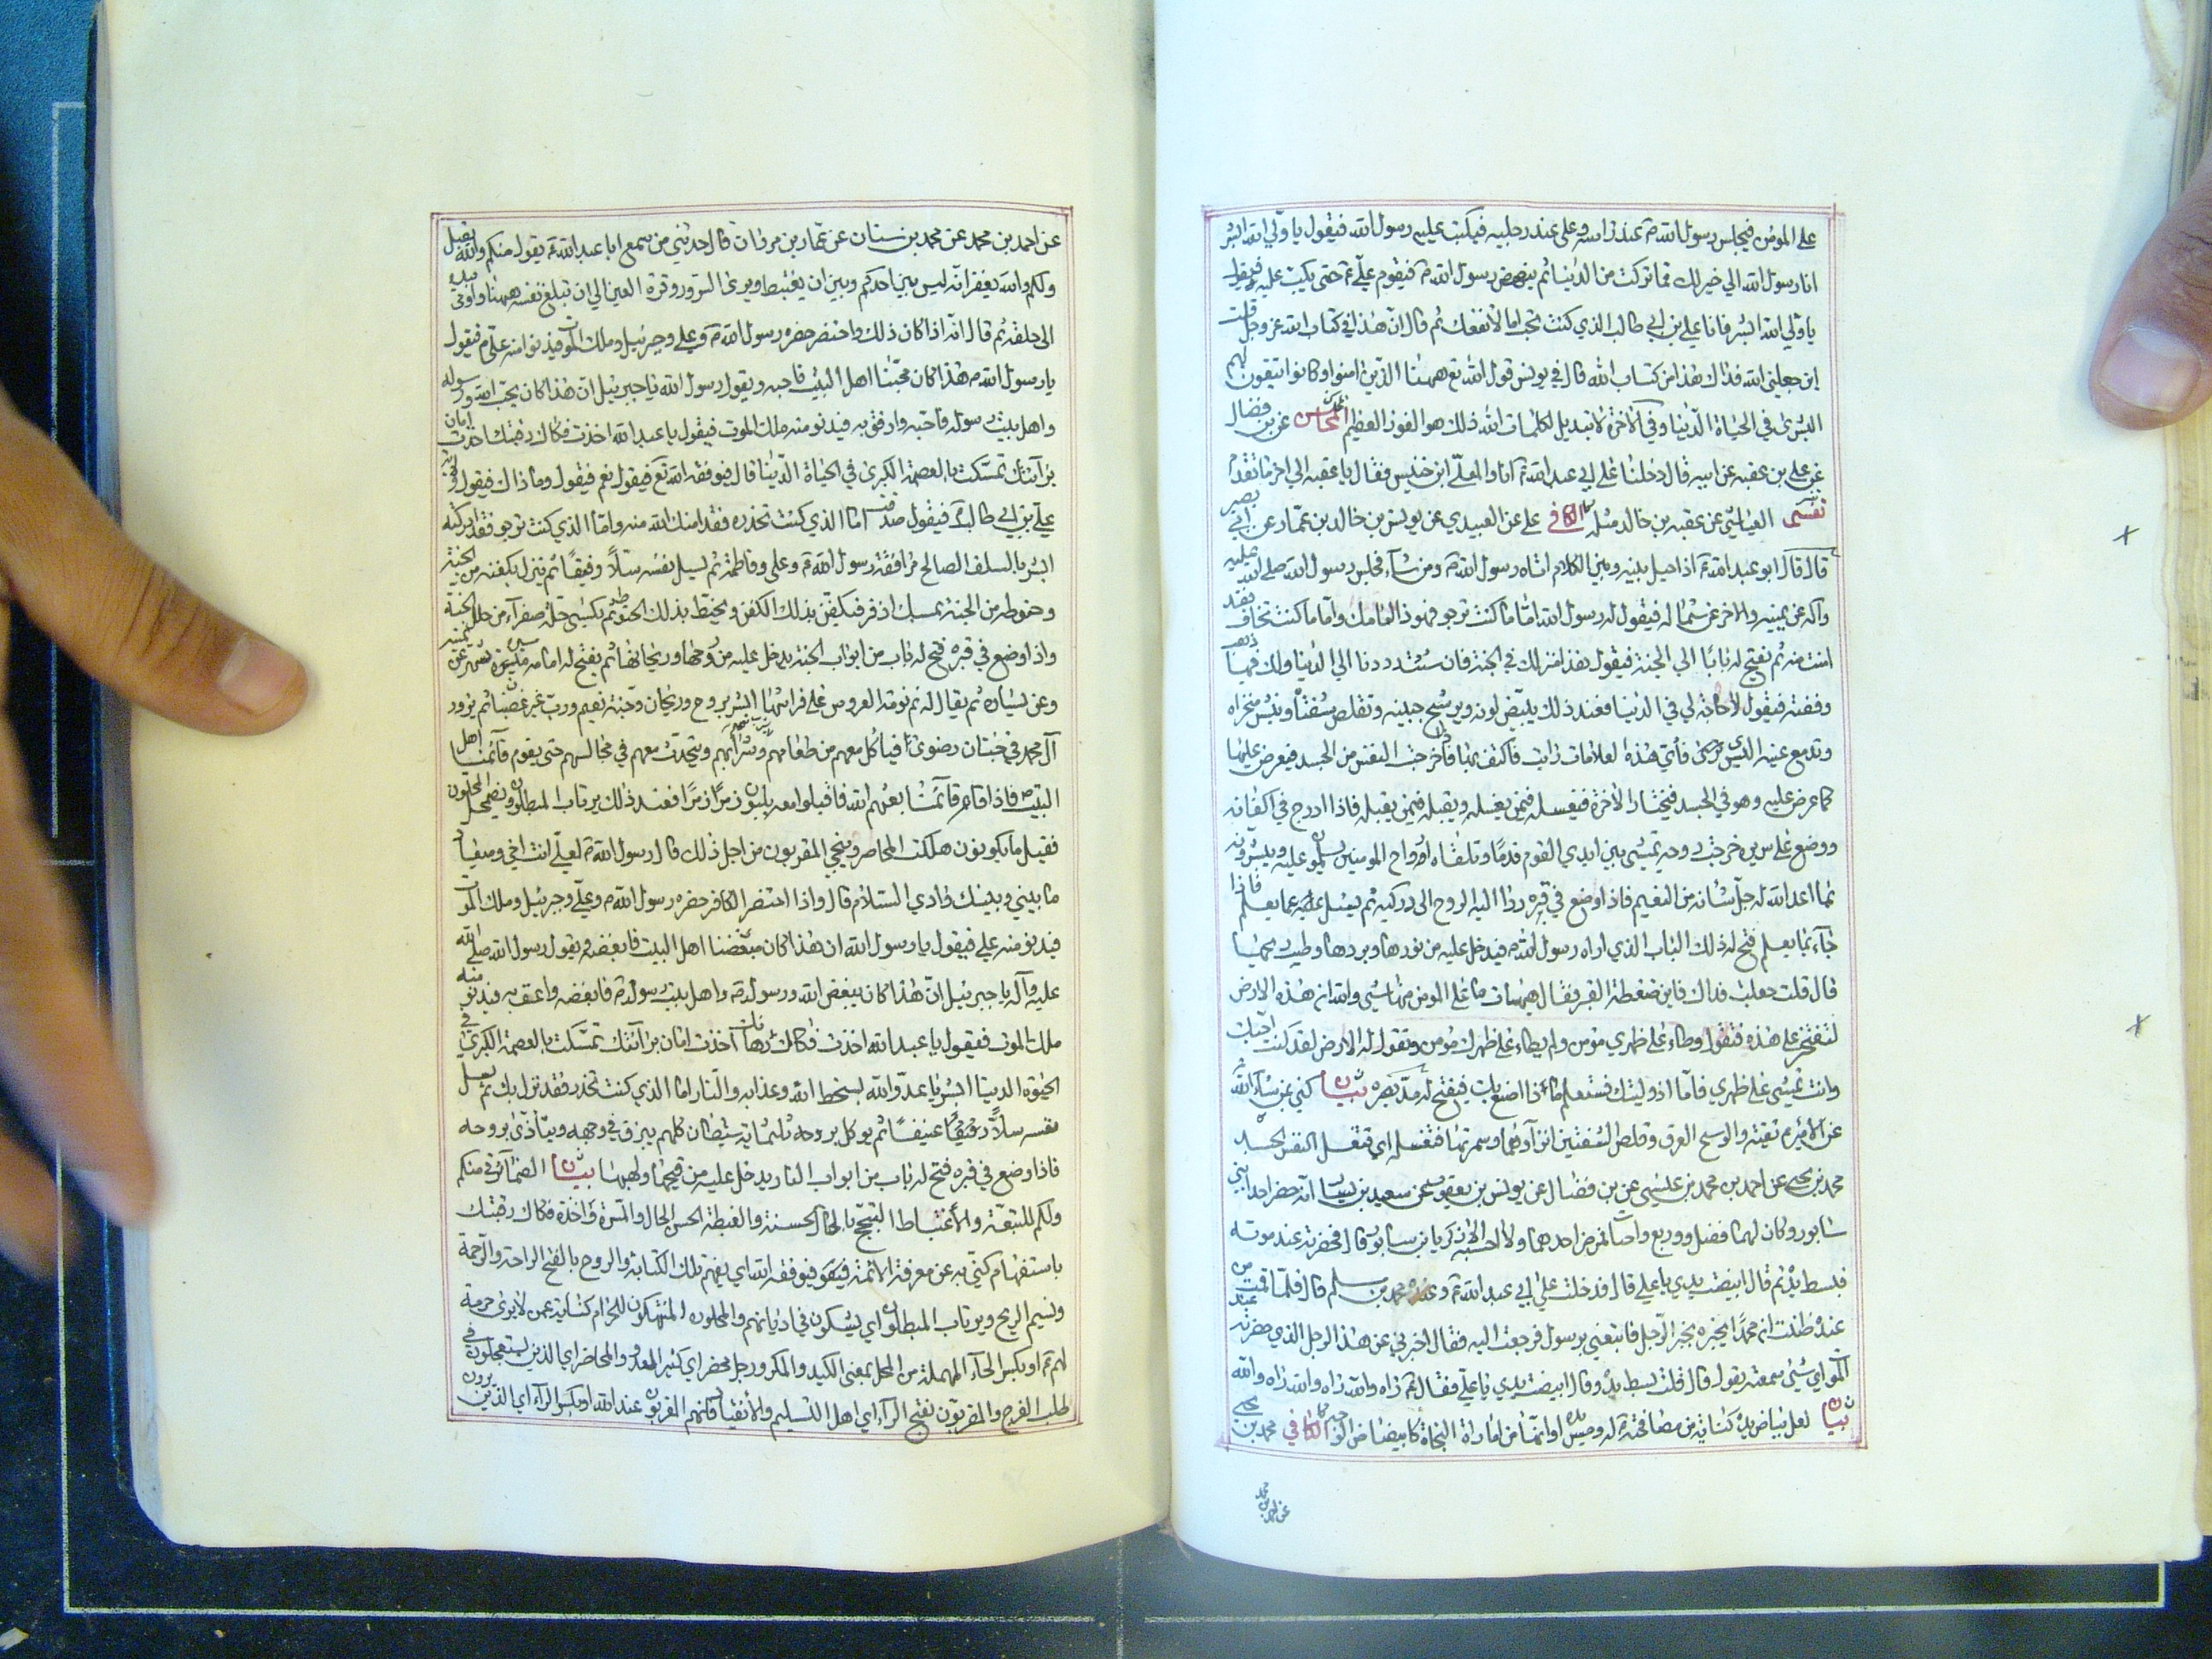 على المؤمن فيجلس رسول الله ص عند راسه وعلى عند رجليه فيكب عليه رسول الله فيقول يا ولي الله ابشر
انا رسول الله اني خير لك مما تركت من الدنيا ثم ينهض رسول الله ص فيقوم علي ع حتى يكب عليه فيقول
يا ولي الله ابشر فانا علي بن ابي طالب الذي كنت تحب اما لأنفعك ثم قال ان هذا في كتاب الله عز وجل قلت
اين جعلني الله فداك هذا من كتاب الله قال في يونس قول الله تع ههنا الذين امنوا وكانوا يتقون لهم
البشرى في الحياة الدنيا وفي الآخرة لا تبديل لكلمات الله ذلك هو الفوز العظيم المحاسن عن بن فضال
عن علي بن عقبه عن ابيه قال دخلنا على ابي عبد الله ع انا والمعلى ابن خنيس فقال يا عقبه الى اخر ما تقدم
تفسير العياشي عن عقبه بن خالد مثله الكافي علي عن العبيدي عن يونس بن خالد بن عمار عن ابي بصير
قال قال ابو عبد الله ع اذا حيل بينه وبين الكلام اتاه رسول الله ص ومن شاء فجلس رسول الله صلى الله عليه
وآله عن يمينه والاخر عن شماله فيقول له رسول الله اما ما كنت ترجو فهوذا امامك واما ما كنت تخاف فقد
امنت منه ثم يفتح له بابا الى الجنة فيقول هذا منزلك في الجنة فان شئت رددنا الى الدنيا ولك فيها ذهب
وفضة فيقول لا حاجة لي في الدنيا فعند ذلك يبيض لونه ويرشح جبينه وتقلص شفتاه وينتشر منخراه
وتدمع عينه اليسرى فأي هذه العلامات رايت فاكتف بها فاذا خرجت النفس من الجسد فيعرض عليها
كما عرض عليه وهو في الجسد فيختار الآخرة فيغسله فيمن يغسله ويقلبه فيمن يقلبه فاذا ادرج في اكفانه
ووضع على سريره خرجت روحه تمشي بين ايدي القوم قدما وتلقاه ارواح المومنين يسلمون عليه ويبشرونه
بما اعد الله له جل ثنائه من النعيم فاذا وضع في قبره رد اليه الروح الى وركيه ثم يسئل عما يعلم فاذا
جاء بما يعلم فتح له ذلك الباب الذي اراه رسول الله ص فيدخل عليه من نورها وبردها وطيب ريحها
قال قلت جعلت فداك فاين ضغطة القبر فقال هيهات ما على المومن منها شئ والله ان هذه الارض
لتفتخر على هذه فتقول وطاء على ظهري مؤمن ولم يطاء على ظهرك مؤمن وتقول له الارض لقد كنت احبك
وانت تمشي على ظهري فاما اذ وليتك فستعلم ما ذا اصنع بك فيفتح له مد بصره بيان كني بمن شاء الله
عن الامير ع تقية والرشح العرق وقلص الشفتين انزواؤهما وسمرتهما فتغسله اي تغسل النفس الجسد
محمد بن يحيى عن احمد بن محمد بن عيسى عن بن فضال عن يونس بن يعقوب عن سعيد بن يسار انه حضر احد ابني
سابور وكان لهما فضل وورع واخبات فمرض احدهما ولا احسبه الا زكريا بن سابور قال فحضرته عند موته
فبسط يده ثم قال ابيضت يدي يا علي قال فدخلت على ابي عبد الله ع وعنده محمد بن مسلم قال فلما قمت من
عنده ظننت ان محمدا يخبره بخبر الرجل فاتبعني برسول فرجعت اليه فقال اخبرني عن هذا الرجل الذي حضرته عند
الموت اي شئ سمعته يقول قال قلت بسط يده وقال ابيضت يدي يا علي فقال ع راه والله راه والله راه والله
بيان لعل بياض يده كناية عن مصافحته له وميس او انها من امارات النجاة كابيضاض الوجه الكافي محمد بن يحيى
عن احمد بن محمد
عن احمد بن محمد عن محمد بن سنان عن عمار بن مروان قال حدثني من سمع ابا عبد الله ع يقول منكم والله يقبل
ولكم والله يغفر انه ليس بين احدكم وبين ان يغتبط ويرى السرور وقرة العين الا ان تبلغ نفسه ههنا واومى بيده
الى حلقه ثم قال انه اذا كان ذلك واحتضر حضره رسول الله ص وعلي وجبرئيل وملك الموت فيدنو منه علي ع فيقول
يا رسول الله هذا كان محبنا اهل البيت فاحبه ويقول رسول الله يا جبرئيل ان هذا كان يحب الله ورسوله
واهل بيت رسوله فاحبه وارفق به فيدنو منه ملك الموت فيقول يا عبد الله اخذت فكاك رقبتك اخذت امان
برآئتك تمسكت بالعصمة الكبرى في الحياة الدنيا قال فيوفقه الله تع فيقول نعم فيقول وما ذاك فيقول ولاية
علي بن ابي طالب ع فيقول صدقت اما الذي كنت تحذره فقد امنك الله منه واما الذي كنت ترجو فقد ادركته
ابشر بالسلف الصالح مرافقة رسول الله ص وعلي وفاطمة ثم يسل نفسه سلا رفيقا ثم ينزل بكفنه من الجنة
وحنوطه من الجنة بمسك اذفر فيكفن بذلك الكفن ويحنط بذلك الحنوط ثم يكسى حلة صفراء من حلل الجنة
واذا وضع في قبره فتح له باب من ابواب الجنة يدخل عليه من روحها وريحانها ثم يفتح له امامه مسيرة شهر وعن يمينه
وعن يساره ثم يقال له نم نومة العروس على فراشها ابشر بروح وريحان وجنة نعيم ورب غير غضبان ثم يزور
آل محمد في جنان رضوى فياكل معهم من طعامهم ويشرب معهم من شرابهم ويتحدث معهم في مجالسهم حتى يقوم قائمنا اهل
البيت ص فاذا قام قائمنا بعثهم الله فاقبلوا معه يلبون زمرا زمرا فعند ذلك يرتاب المبطلون ويضمحل المحلون
فقليل ما يكونون هلكت المحاصر ونجى المقربون من اجل ذلك قال رسول الله ص لعلي انت اخي وميعاد
ما بيني وبينك وادي السلام قال واذا احتضر الكافر حضره رسول الله ص وعلي وجبرئيل وملك الموت
فيدنو منه علي فيقول يا رسول الله ان هذا كان مبغضنا اهل البيت فابغضه ويقول رسول الله صلى الله
عليه وآله يا جبرئيل ان هذا كان يبغض الله ورسوله ص واهل بيت رسوله ص فابغضه واعنف به فيدنو منه
ملك الموت فيقول يا عبد الله اخذت فكاك رهانك اخذت امان برائتك تمسكت بالعصمة الكبرى في
الحيوة الدنيا ابشر يا عدو الله بسخط الله وعذابه والنار اما الذي كنت تحذر فقد نزل بك ثم يسل
نفسه سلا عنيفا ثم يوكل بروحه ثلثماية شيطان كلهم يبزق في وجهه ويتأذى بروحه
فاذا وضع في قبره فتح له باب من ابواب النار يدخل عليه من قيحها ولهبها بيان الضمائر في منكم
ولكم للشيعة والأغتباط التبجح بالحال الحسنة والغبطة الحسن الحال والمسرة واخذة فكاك رقبتك
باستفهام كني به عن معرفة الائمة فيقو فيوفقه الله اي يفهم تلك الكناية والروح بالفتح الراحة والرحمة
ونسيم الريح ويرتاب المبطلون اي يشكون في اديانهم والمحلون المنتهكون للحرام كناية عمن لا يرى حرمة
لهم ع او بكسر الحاء المهملة من المحل بمعنى الكيد والمكر ورجل محضر اي كثير العدو والمحاضر اي الذين يستعجلون في
طلب الفرج والمقربون بفتح الراء اي اهل التسليم والأنقياد فانهم المقربون عند الله او بكسر الراء اي الذين يرون